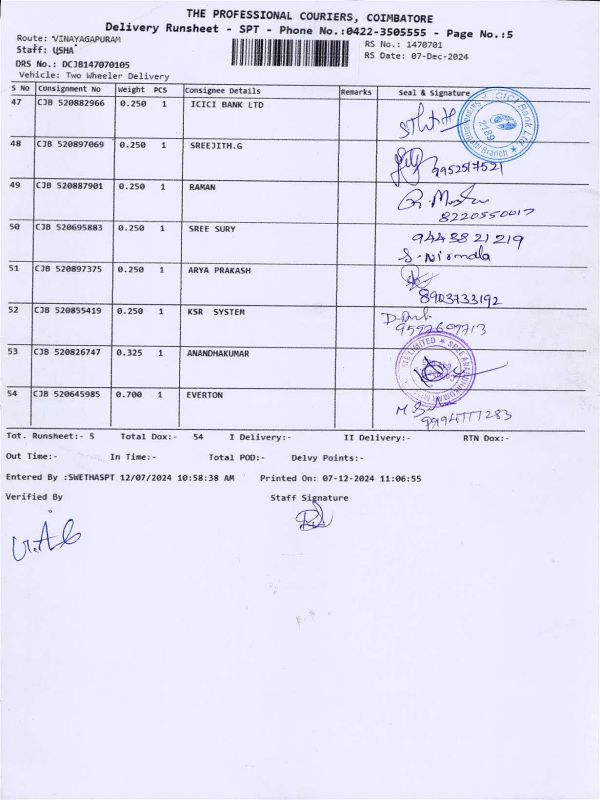 THE PROFESSIONAL COURIERS, COIMBATORE
Delivery Runsheet - SPT - Phone No.:0422-3505555 - Page No.:5
Route: VINAYAGAPURAM
Staff: USHA
RS No.: 1470701
RS Date: 07-Dec-2024
DRS No.: DCJB147070105
Vehicle: Two Wheeler Delivery
S No Consignment No Weight PCS Consignee Details Remarks Seal & Signature
47 CJB 520882966 0.250 1 ICICI BANK LTD
ICICI Bank Ltd
Branch
48 CJB 520897069 0.250 1 SREEJITH.G
9952517521
49 CJB 520887901 0.250 1 RAMAN
8220550017
50 CJB 520695883 0.250 1 SREE SURY
9443821219
S. Nirmala
51 CJB 520897375 0.250 1 ARYA PRAKASH
8903733192
52 CJB 520855419 0.250 1 KSR SYSTEM
53 CJB 520826747 0.325 1 ANANDHAKUMAR
54 CJB 520645985 0.700 1 EVERTON
Tot. Runsheet:- 5 Total Dox:- 54 I Delivery:- II Delivery:- RTN Dox:-
Out Time:- In Time:- Total POD:- Delvy Points:-
Entered By :SWETHASPT 12/07/2024 10:58:38 AM Printed On: 07-12-2024 11:06:55
Verified By Staff Signature